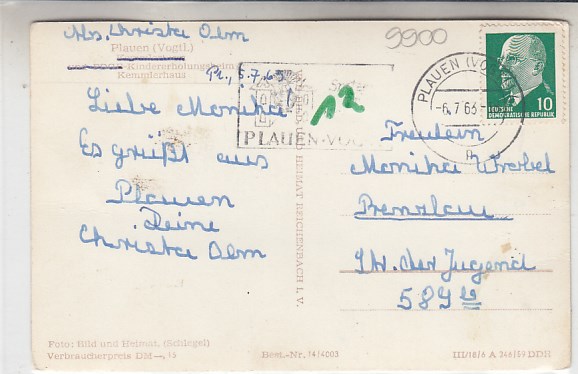 Abs. Christa Olm
Plauen (Vogtl.)
DDR-Kindererholungsheim
Kemmlerhaus
Pl., 5.7.63
Liebe Monika
Es grüßt aus
Plauen
Deine
Christa Olm
9900
12
PLAUEN-VO
PLAUEN (VO
-6.7.63-
h
10
DEUTSCHE
DEMOKRATISCHE REPUBLIK
BILD UND HEIMAT REICHENBACH I. V.
Fräulein
Monika Wrobel
Prenzlau
Str. der Jugend
Foto: Bild und Heimat. (Schlegel)
Verbraucherpreis DM —, 15
Best.-Nr. 14/4003
III/18/6 A 246/59 DDR